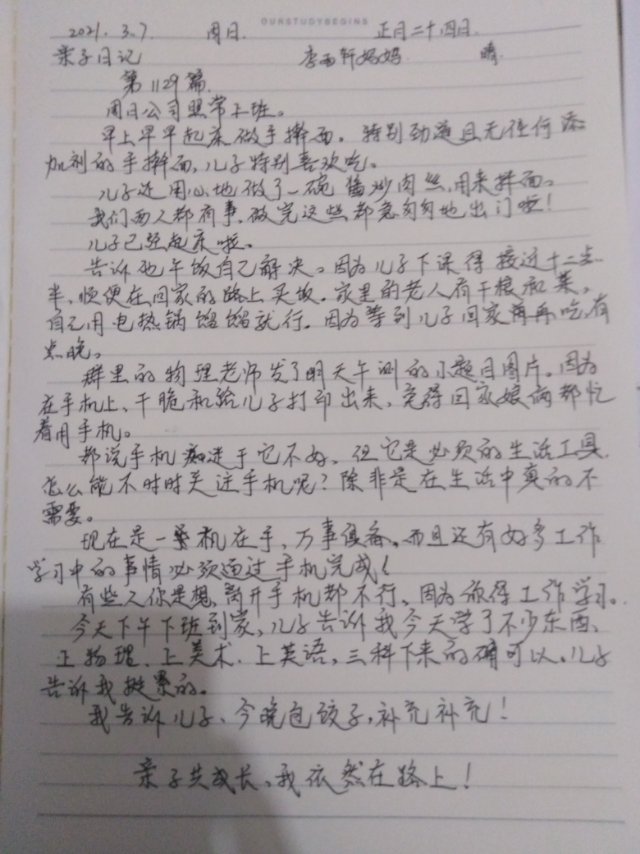 OURSTUDYBEGINS
2021. 3.7. 周日. 正月二十四日.
亲子日记 李雨轩妈妈 晴.
第1129篇.
周日公司照常上班。
早上早早起来做手擀面。特别劲道且无任何添
加剂的手擀面,儿子特别喜欢吃。
儿子还用心地做了一碗酱炒肉丝,用来拌面。
我们两人都有事,做完这些都急匆匆地出门啦!
儿子已经起床啦。
告诉他午饭自己解决。因为儿子下课得接近十二点
半,顺便在回家的路上买饭。家里的老人有干粮和菜。
自己用电热锅馏馏就行。因为等到儿子回家再再吃,有
点晚。
群里的物理老师发了明天午测的小题目图片。因为
在手机上、干脆机给儿子打印出来,免得回家娘俩都忙
着用手机。
都说手机痴迷于它不好,但它是必须的生活工具.
怎么能不时时关注手机呢?除非是在生活中真的不
需要。
现在是一机在手,万事俱备。而且还有好多工作
学习中的事情必须通过手机完成!
有些人你是想,离开手机都不行。因为你得工作学习。
今天下午下班到家,儿子告诉我今天学了不少东西、
上物理、上美术、上英语,三科下来的确可以。儿子
告诉我挺累的。
我告诉儿子、今晚包饺子,补充补充!
亲子共成长、我依然在路上!